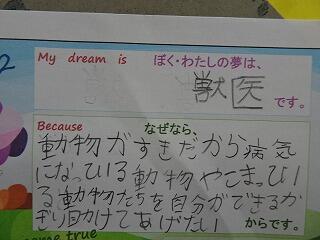 2
My dream is ぼく・わたしの夢は、
獣医 です。
Because なぜなら、
動物がすきだから病気
になっている動物やこまってい
る動物たちを自分ができるか
ぎり助けてあげたい からです。
come true